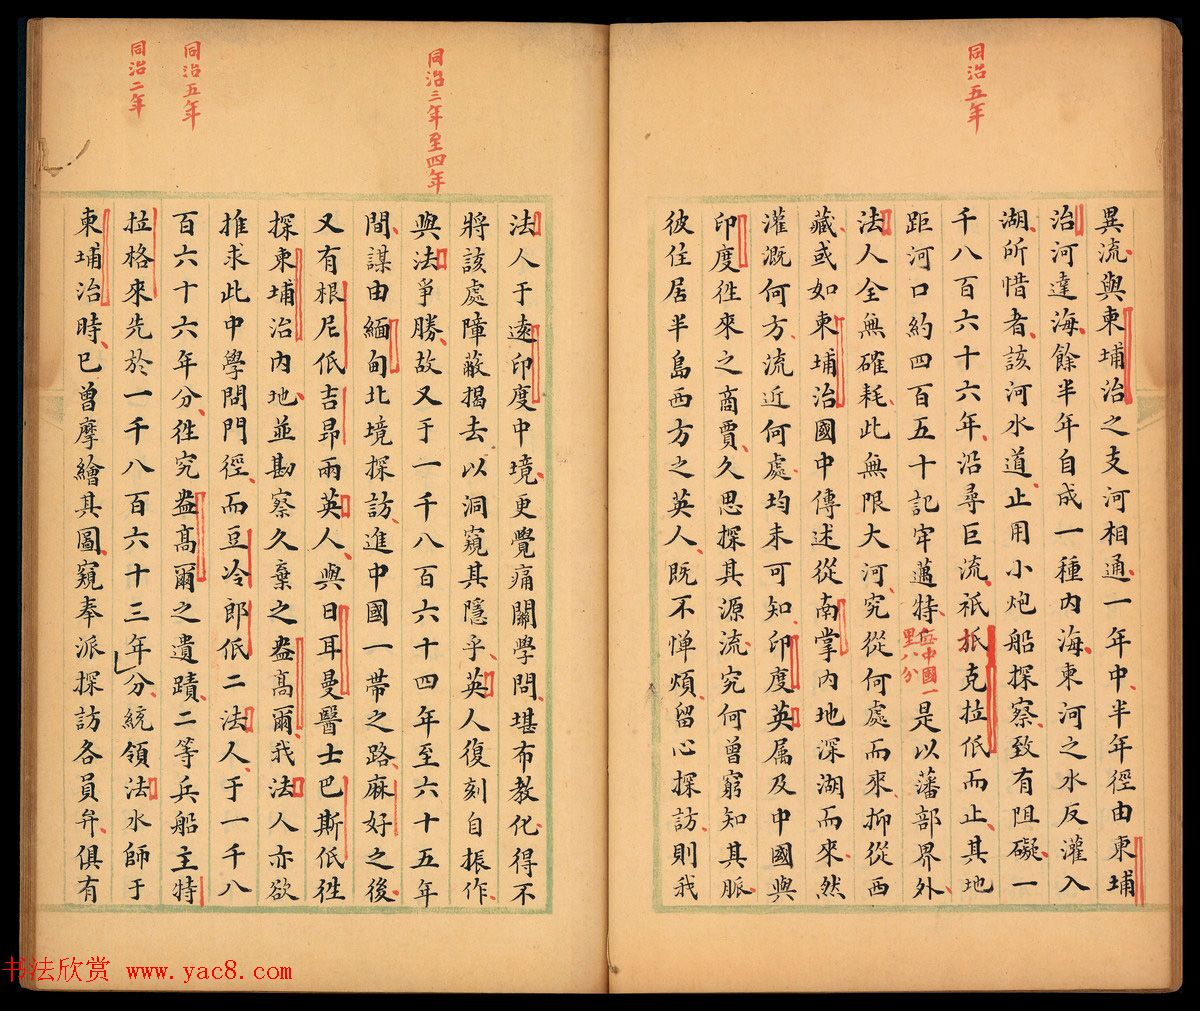 同治五年
異流與柬埔治之支河相通一年中半年徑由柬埔
治河達海餘半年自成一種內海東河之水反灌入
湖所惜者該河水道止用小炮船探察致有阻礙一
千八百六十六年沿尋巨流祇抵克拉低而止其地
距河口約四百五十記牢邁特每中國一里八分是以藩部界外
法人全無確耗此無限大河究從何處而來抑從西
藏或如柬埔治國中傳述從南掌內地深湖而來然
灌溉何方流近何處均未可知印度英属及中國與
印度徃來之商賈久思探其源流究何曾窮知其脈
彼住居半島西方之英人既不憚煩留心探訪則我
同治三年至四年
同治五年
同治二年
法人于遠印度中境更覺痛關學問堪布教化得不
將該處障蔽揭去以洞窺其隱乎英人復刻自振作
與法爭勝故又于一千八百六十四年至六十五年
間謀由緬甸北境探訪進中國一帶之路麻好之後
又有根尼低吉昂兩英人與日耳曼醫士巴斯低徃
探柬埔治內地並勘察久棄之盎高爾我法人亦欲
推求此中學問門徑而豆冷郎低二法人于一千八
百六十六年分徃究盎高爾之遺蹟二等兵船主特
拉格來先於一千八百六十三年分統領法水師于
柬埔治時已曾摩繪其圖窺奉派探訪各員弁俱有
书法欣赏 www.yac8.com